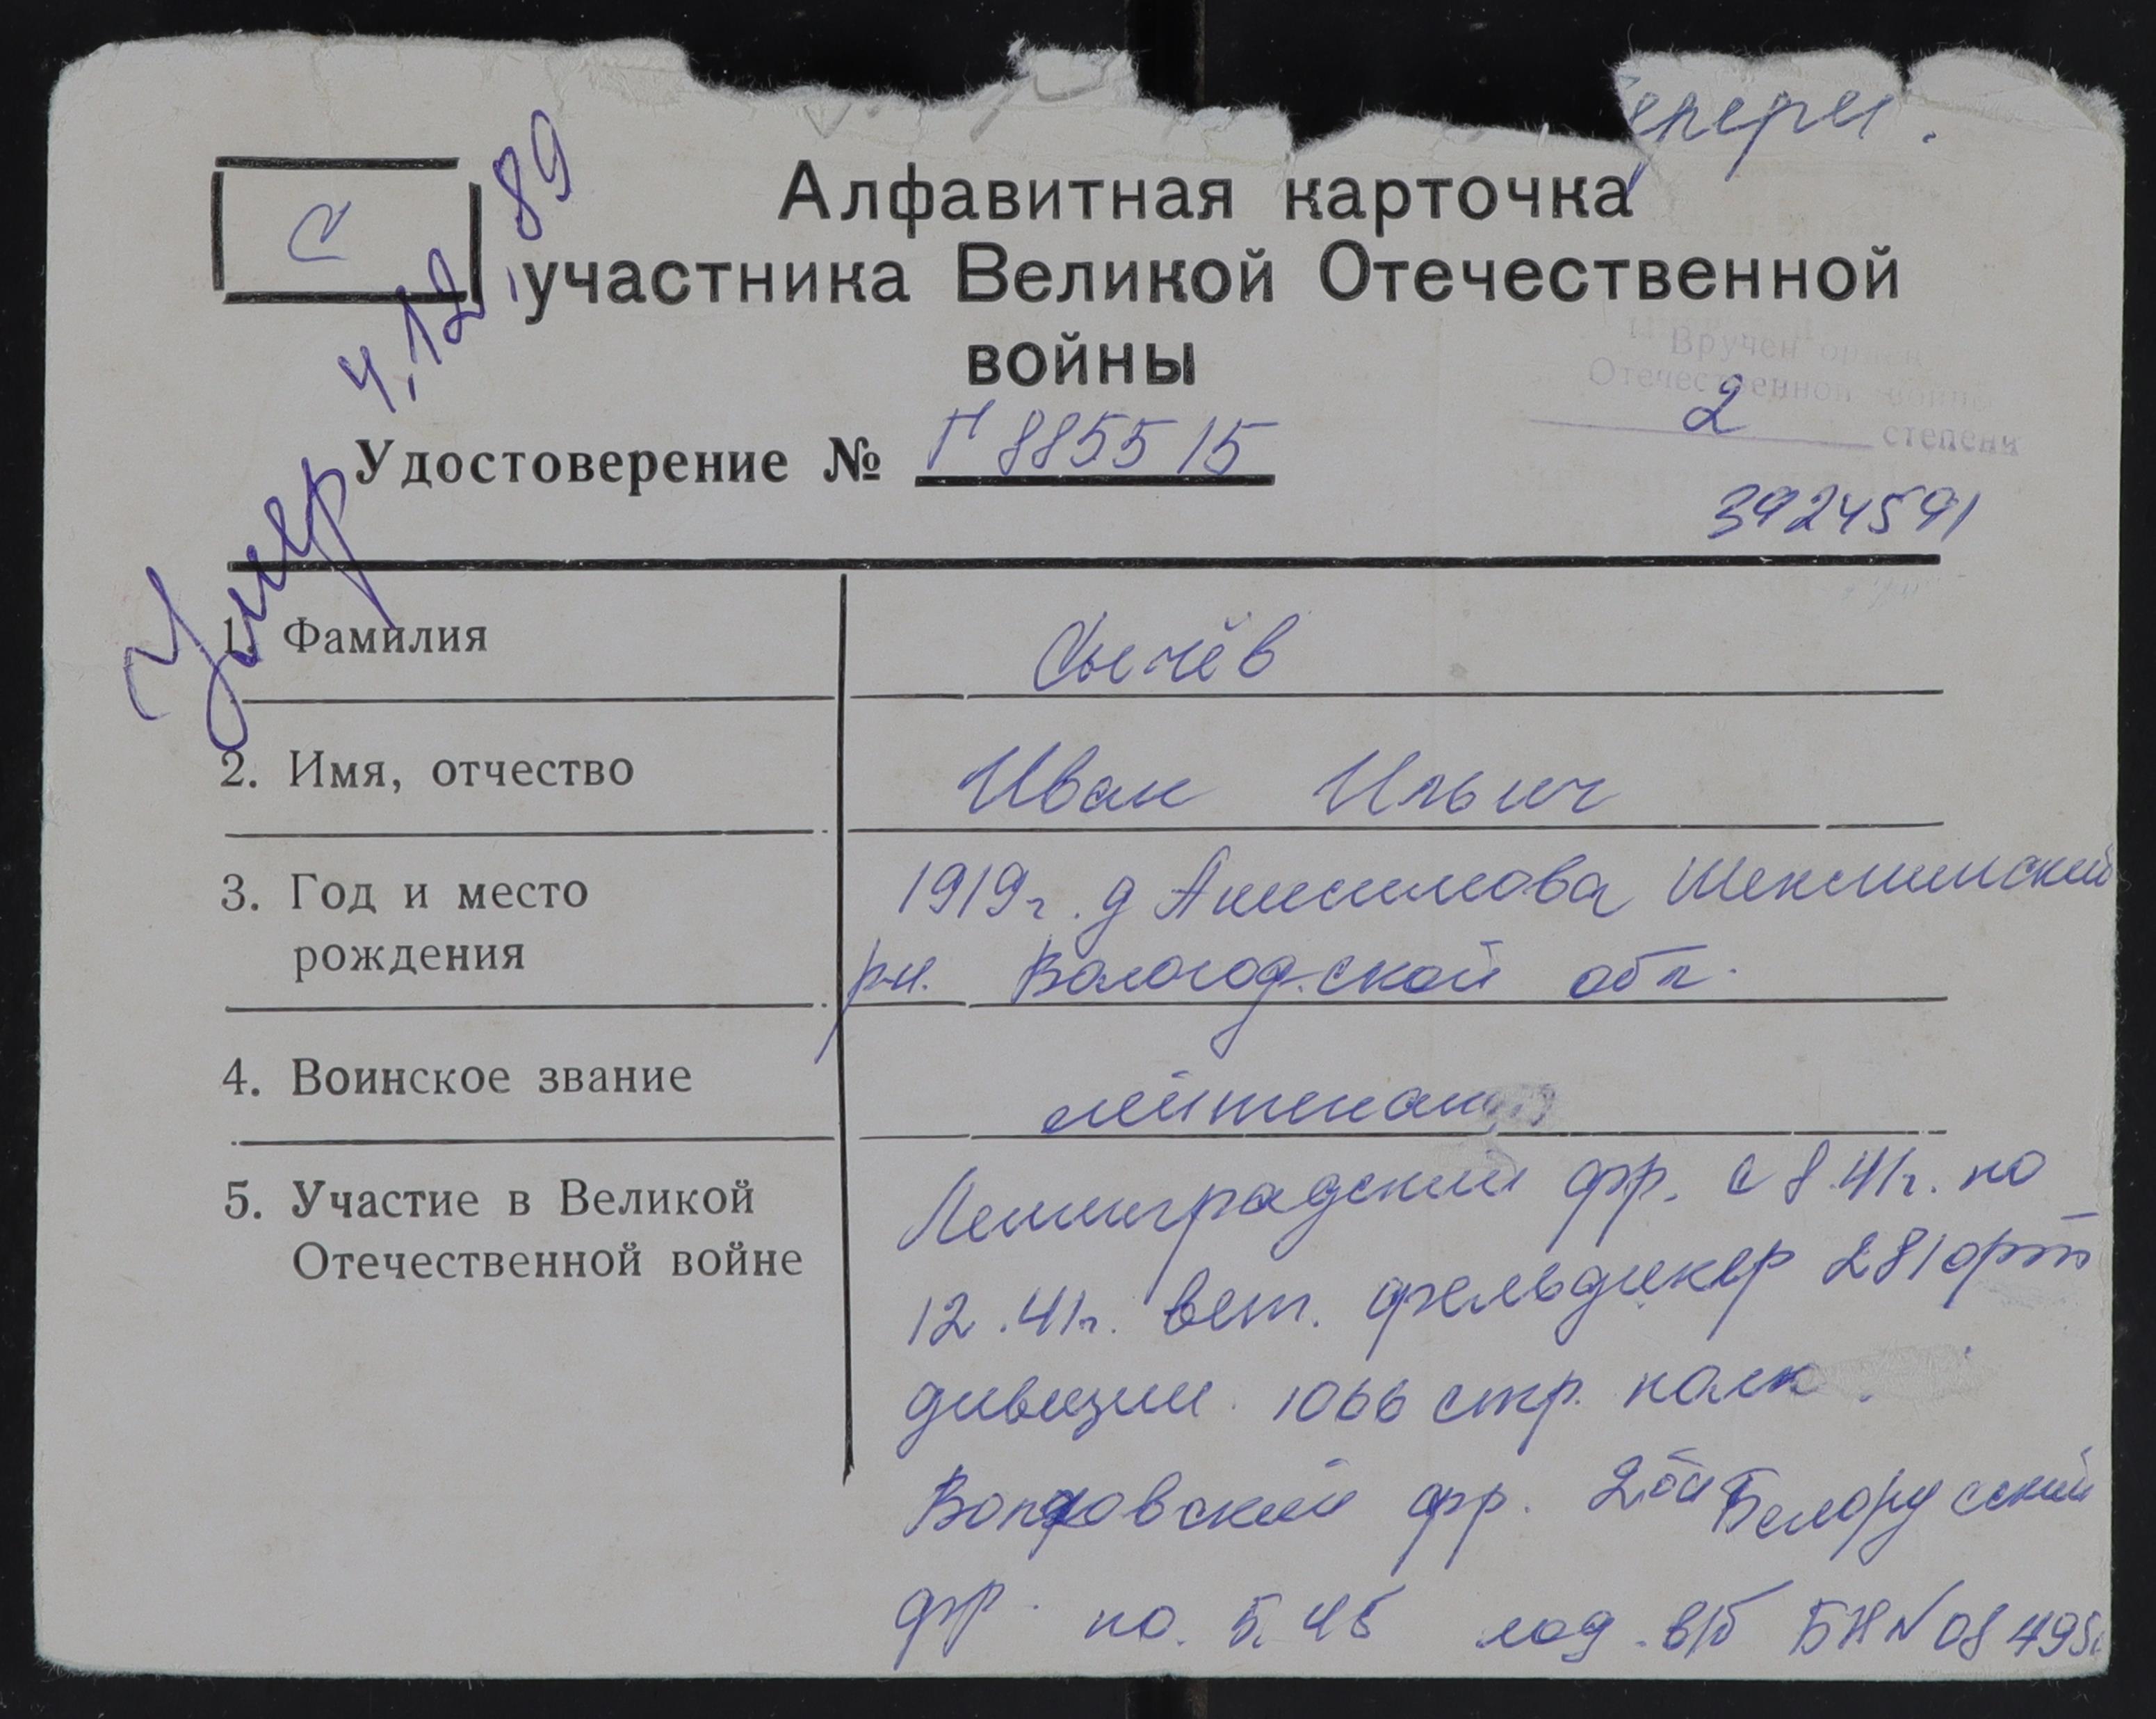 С
Алфавитная карточка
участника Великой Отечественной
войны
Умер 4.12.89
Вручен орден
Отечественной войны
2 степени
Удостоверение № Г 885515
3924591
1. Фамилия
Сычёв
2. Имя, отчество
Иван Ильич
3. Год и место
рождения
1919г. д Анисимова Шекснинский
р-н. Вологодской обл.
4. Воинское звание
лейтенант
5. Участие в Великой
Отечественной войне
Ленинградский фр. с 8.41г. по
12.41г. вет. фельдшер 281
дивизии 1066 стр. полк.
Волховский фр. 2ой Белорусский
фр. по 5.45 в/б БН N